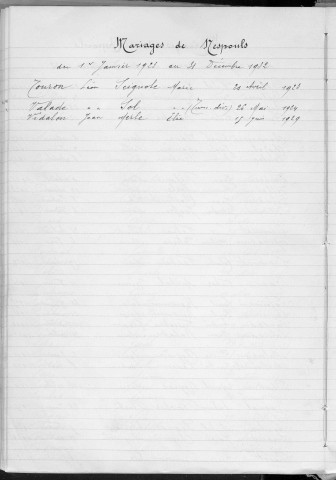 Mariages de Nespouls
du 1er Janvier 1923 au 31 Décembre 1932
Touron Léon Marie 20 Avril 1923
Valade " " Sol " " 26 Mai 1924
Vedalon Jean Merle 15 1929